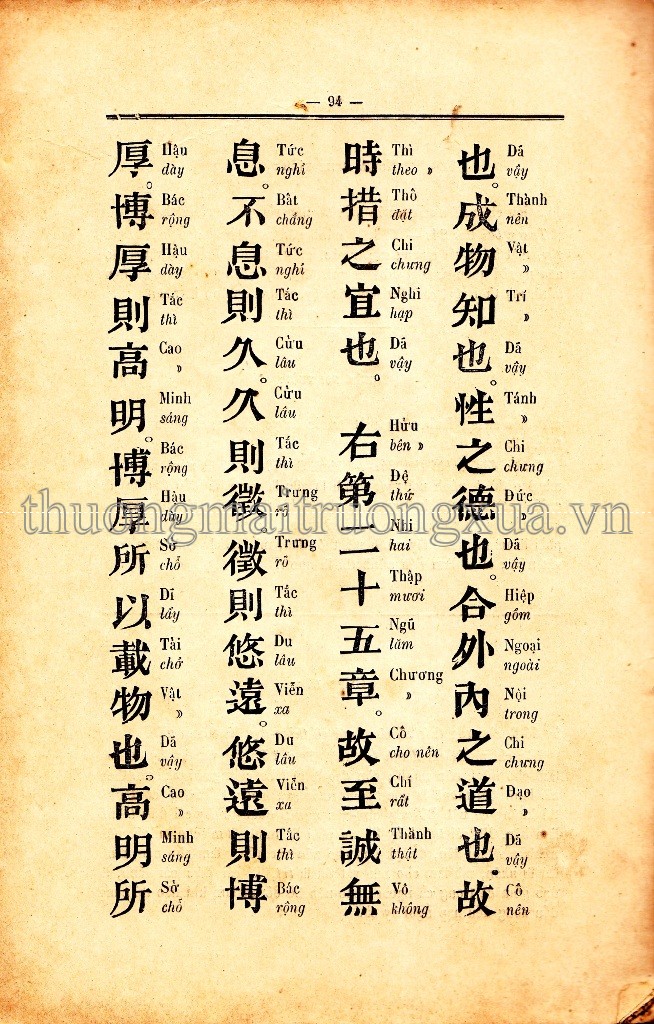 — 94 —
也。成物知也。性之德也。合外內之道也故
Dã
vậy
Thành
nên
Vật
»
Trí
»
Dã
vậy
Tánh
»
Chi
chưng
Đức
»
Dã
vậy
Hiệp
gồm
Ngoại
ngoài
Nội
trong
Chi
chưng
Đạo
»
Dã
vậy
Cố
nên
時措之宜也。 右第二十五章。故至誠無
Thì
theo »
Thố
đặt
Chi
chưng
Nghi
hạp
Dã
vậy
Hữu
bên »
Đệ
thứ
Nhì
hai
Thập
mươi
Ngũ
lăm
Chương
»
Cố
cho nên
Chí
rất
Thành
thật
Vô
không
息。不息則久。久則徵徵則悠遠。悠遠則博
Tức
nghỉ
Bất
chẳng
Tức
nghỉ
Tắc
thì
Cửu
lâu
Cửu
lâu
Tắc
thì
Trưng
rõ
Trưng
rõ
Tắc
thì
Du
lâu
Viễn
xa
Du
lâu
Viễn
xa
Tắc
thì
Bác
rộng
厚。博厚則高明。博厚所以載物也。高明所
Hậu
dày
Bác
rộng
Hậu
dày
Tắc
thì
Cao
»
Minh
sáng
Bác
rộng
Hậu
dày
Sở
chỗ
Dĩ
lấy
Tải
chở
Vật
»
Dã
vậy
Cao
»
Minh
sáng
Sở
chỗ
thuongmaitruongxua.vn